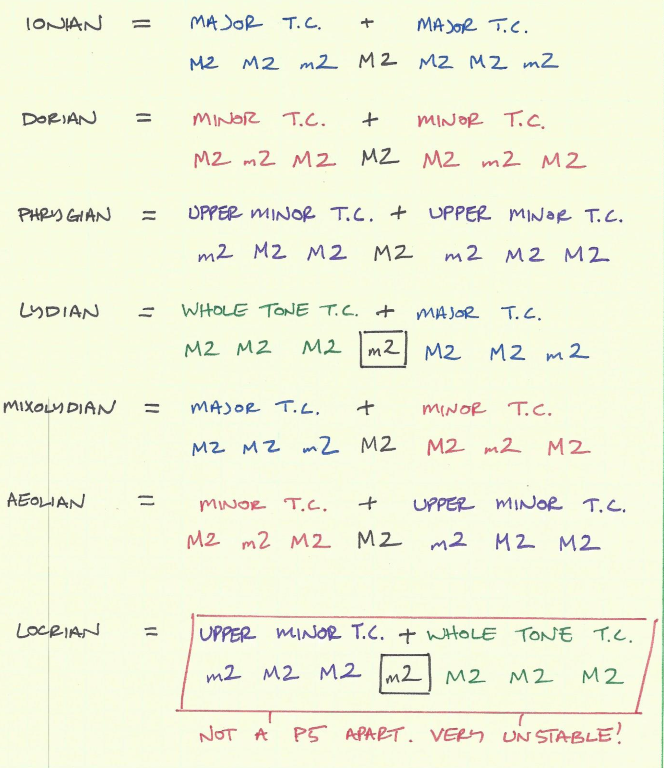 IONIAN = MAJOR T.C. + MAJOR T.C.
M2 M2 m2 M2 M2 M2 m2
DORIAN = MINOR T.C. + MINOR T.C.
M2 m2 M2 M2 M2 m2 M2
PHRYGIAN = UPPER MINOR T.C. + UPPER MINOR T.C.
m2 M2 M2 M2 m2 M2 M2
LYDIAN = WHOLE TONE T.C. + MAJOR T.C.
M2 M2 M2 m2 M2 M2 m2
MIXOLYDIAN = MAJOR T.C. + MINOR T.C.
M2 M2 m2 M2 M2 m2 M2
AEOLIAN = MINOR T.C. + UPPER MINOR T.C.
M2 m2 M2 M2 m2 M2 M2
LOCRIAN = UPPER MINOR T.C. + WHOLE TONE T.C.
m2 M2 M2 m2 M2 M2 M2
NOT A P5 APART. VERY UNSTABLE!